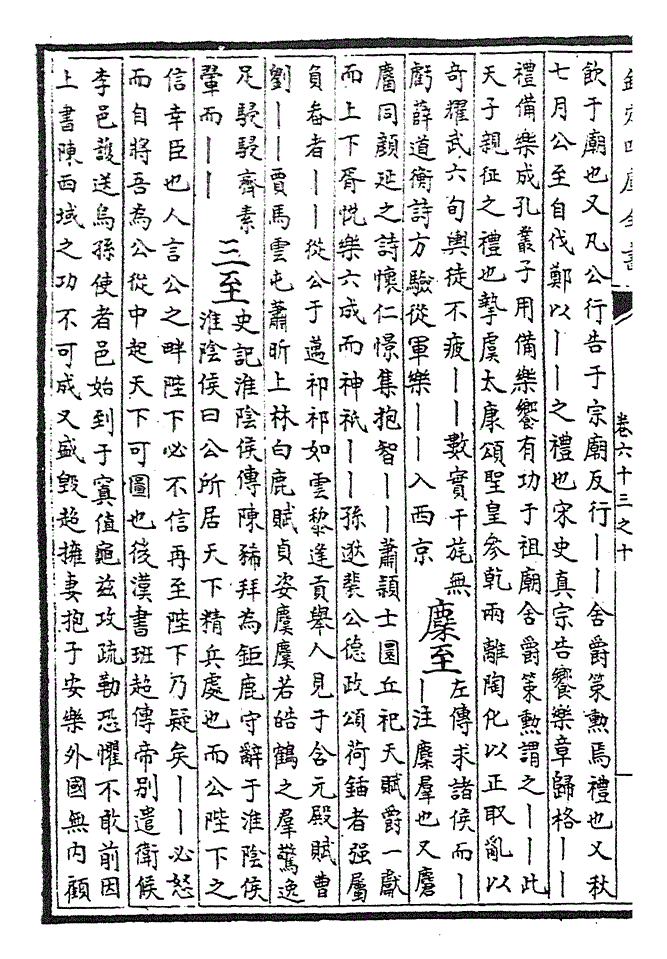 欽定四庫全書
卷六十三之十
飲于廟也又凡公行告于宗廟反行丨丨舍爵策勲焉禮也又秋
七月公至自伐鄭以丨丨之禮也宋史真宗告饗樂章歸格丨丨
禮備樂成孔叢子用備樂饗有功于祖廟舍爵策勲謂之丨丨此
天子親征之禮也摯虞太康頌聖皇參乾兩離陶化以正取亂以
奇耀武六旬輿徒不疲丨丨數實干旄無
虧薛道衡詩方驗從軍樂丨丨入西京
麇至
左傳求諸侯而丨
丨注麇羣也又麏
麕同顔延之詩懷仁憬集抱智丨丨蕭頴士圜丘祀天賦爵一獻
而上下胥悦樂六成而神祇丨丨孫逖裴公德政頌荷鍤者强屬
負畚者丨丨從公于邁祁祁如雲黎逢貢舉人見于含元殿賦曹
劉丨丨賈馬雲屯蕭昕上林白鹿賦貞姿麌麌若皓鶴之羣驚逸
足駸駸齊素
翬而丨丨
三至
史記淮陰侯傳陳豨拜為鉅鹿守辭于淮陰侯
淮陰侯曰公所居天下精兵處也而公陛下之
信幸臣也人言公之畔陛下必不信再至陛下乃疑矣丨丨必怒
而自將吾為公從中起天下可圖也後漢書班超傳帝别遣衛候
李邑護送烏孫使者邑始到于窴值龜兹攻疏勒恐懼不敢前因
上書陳西域之功不可成又盛毁超擁妻抱子安樂外國無内顧